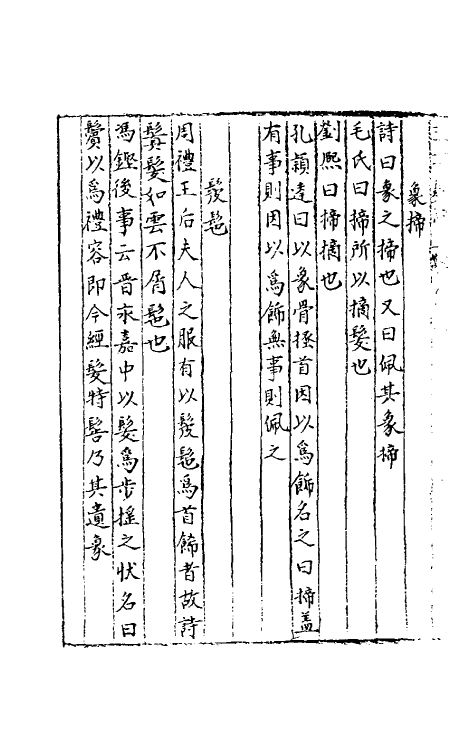 象揥
詩曰象之揥也又曰佩其象揥
毛氏曰揥所以摘髮也
劉熈曰揥摘也
孔穎達曰以象骨搔首因以為飾名之曰揥盖
有事則因以為飾無事則佩之
髲髢
周禮王后夫人之服有以髲髢為首飾者故詩
鬒髮如雲不屑髢也
馮鑑後事云晋永嘉中以髮為步搖之狀名曰
鬟以為禮容即今經髮特髻乃其遺象